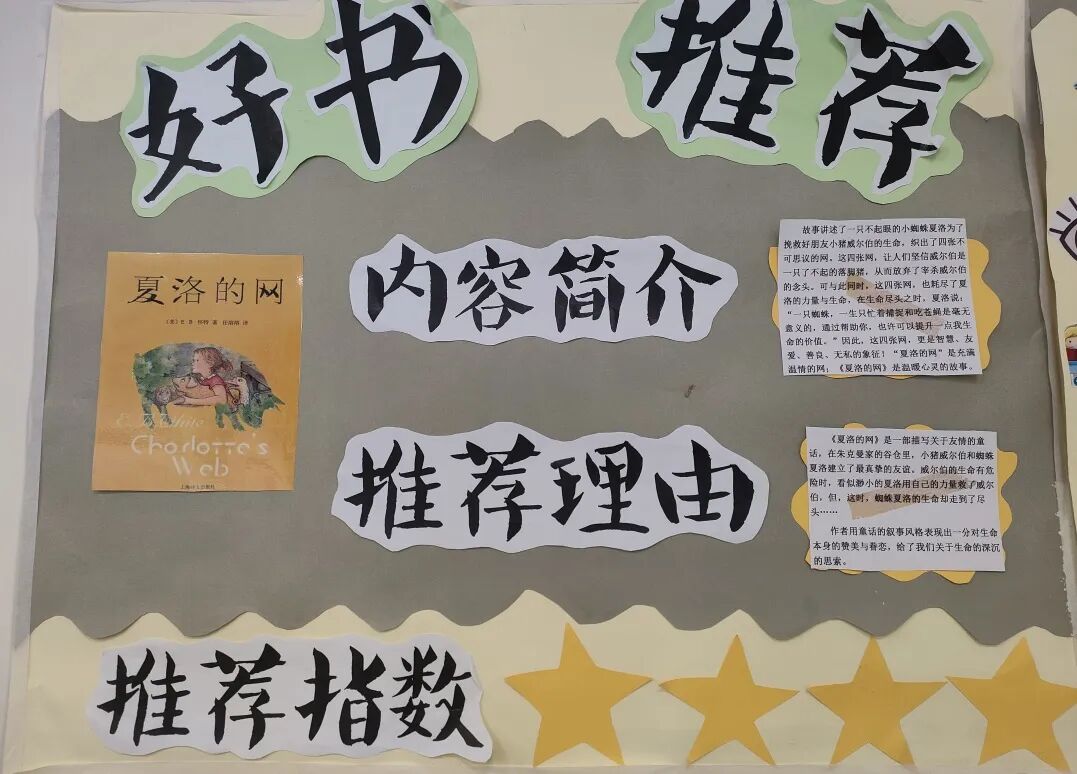 好书 推荐
夏洛的网
(美) E·B·怀特 著 任溶溶 译
E. B. White
Charlotte's
Web
上海译文出版社
内容简介
故事讲述了一只不起眼的小蜘蛛夏洛为了
挽救好朋友小猪威尔伯的生命，织出了四张不
可思议的网，这四张网，让人们坚信威尔伯是
一只了不起的落脚猪，从而放弃了宰杀威尔伯
的念头。可与此同时，这四张网，也耗尽了夏
洛的力量与生命，在生命尽头之时，夏洛说：
“一只蜘蛛，一生只忙着捕捉和吃苍蝇是毫无
意义的，通过帮助你，也许可以提升一点我生
命的价值。”因此，这四张网，更是智慧、友
爱、善良、无私的象征！“夏洛的网”是充满
温情的网；《夏洛的网》是温暖心灵的故事。
推荐理由
《夏洛的网》是一部描写关于友情的童
话，在朱克曼家的谷仓里，小猪威尔伯和蜘蛛
夏洛建立了最真挚的友谊，威尔伯的生命有危
险时，看似渺小的夏洛用自己的力量救了威尔
伯，但，这时，蜘蛛夏洛的生命却走到了尽
头……
作者用童话的叙事风格表现出一分对生命
本身的赞美与眷恋，给了我们关于生命的深沉
的思索。
推荐指数